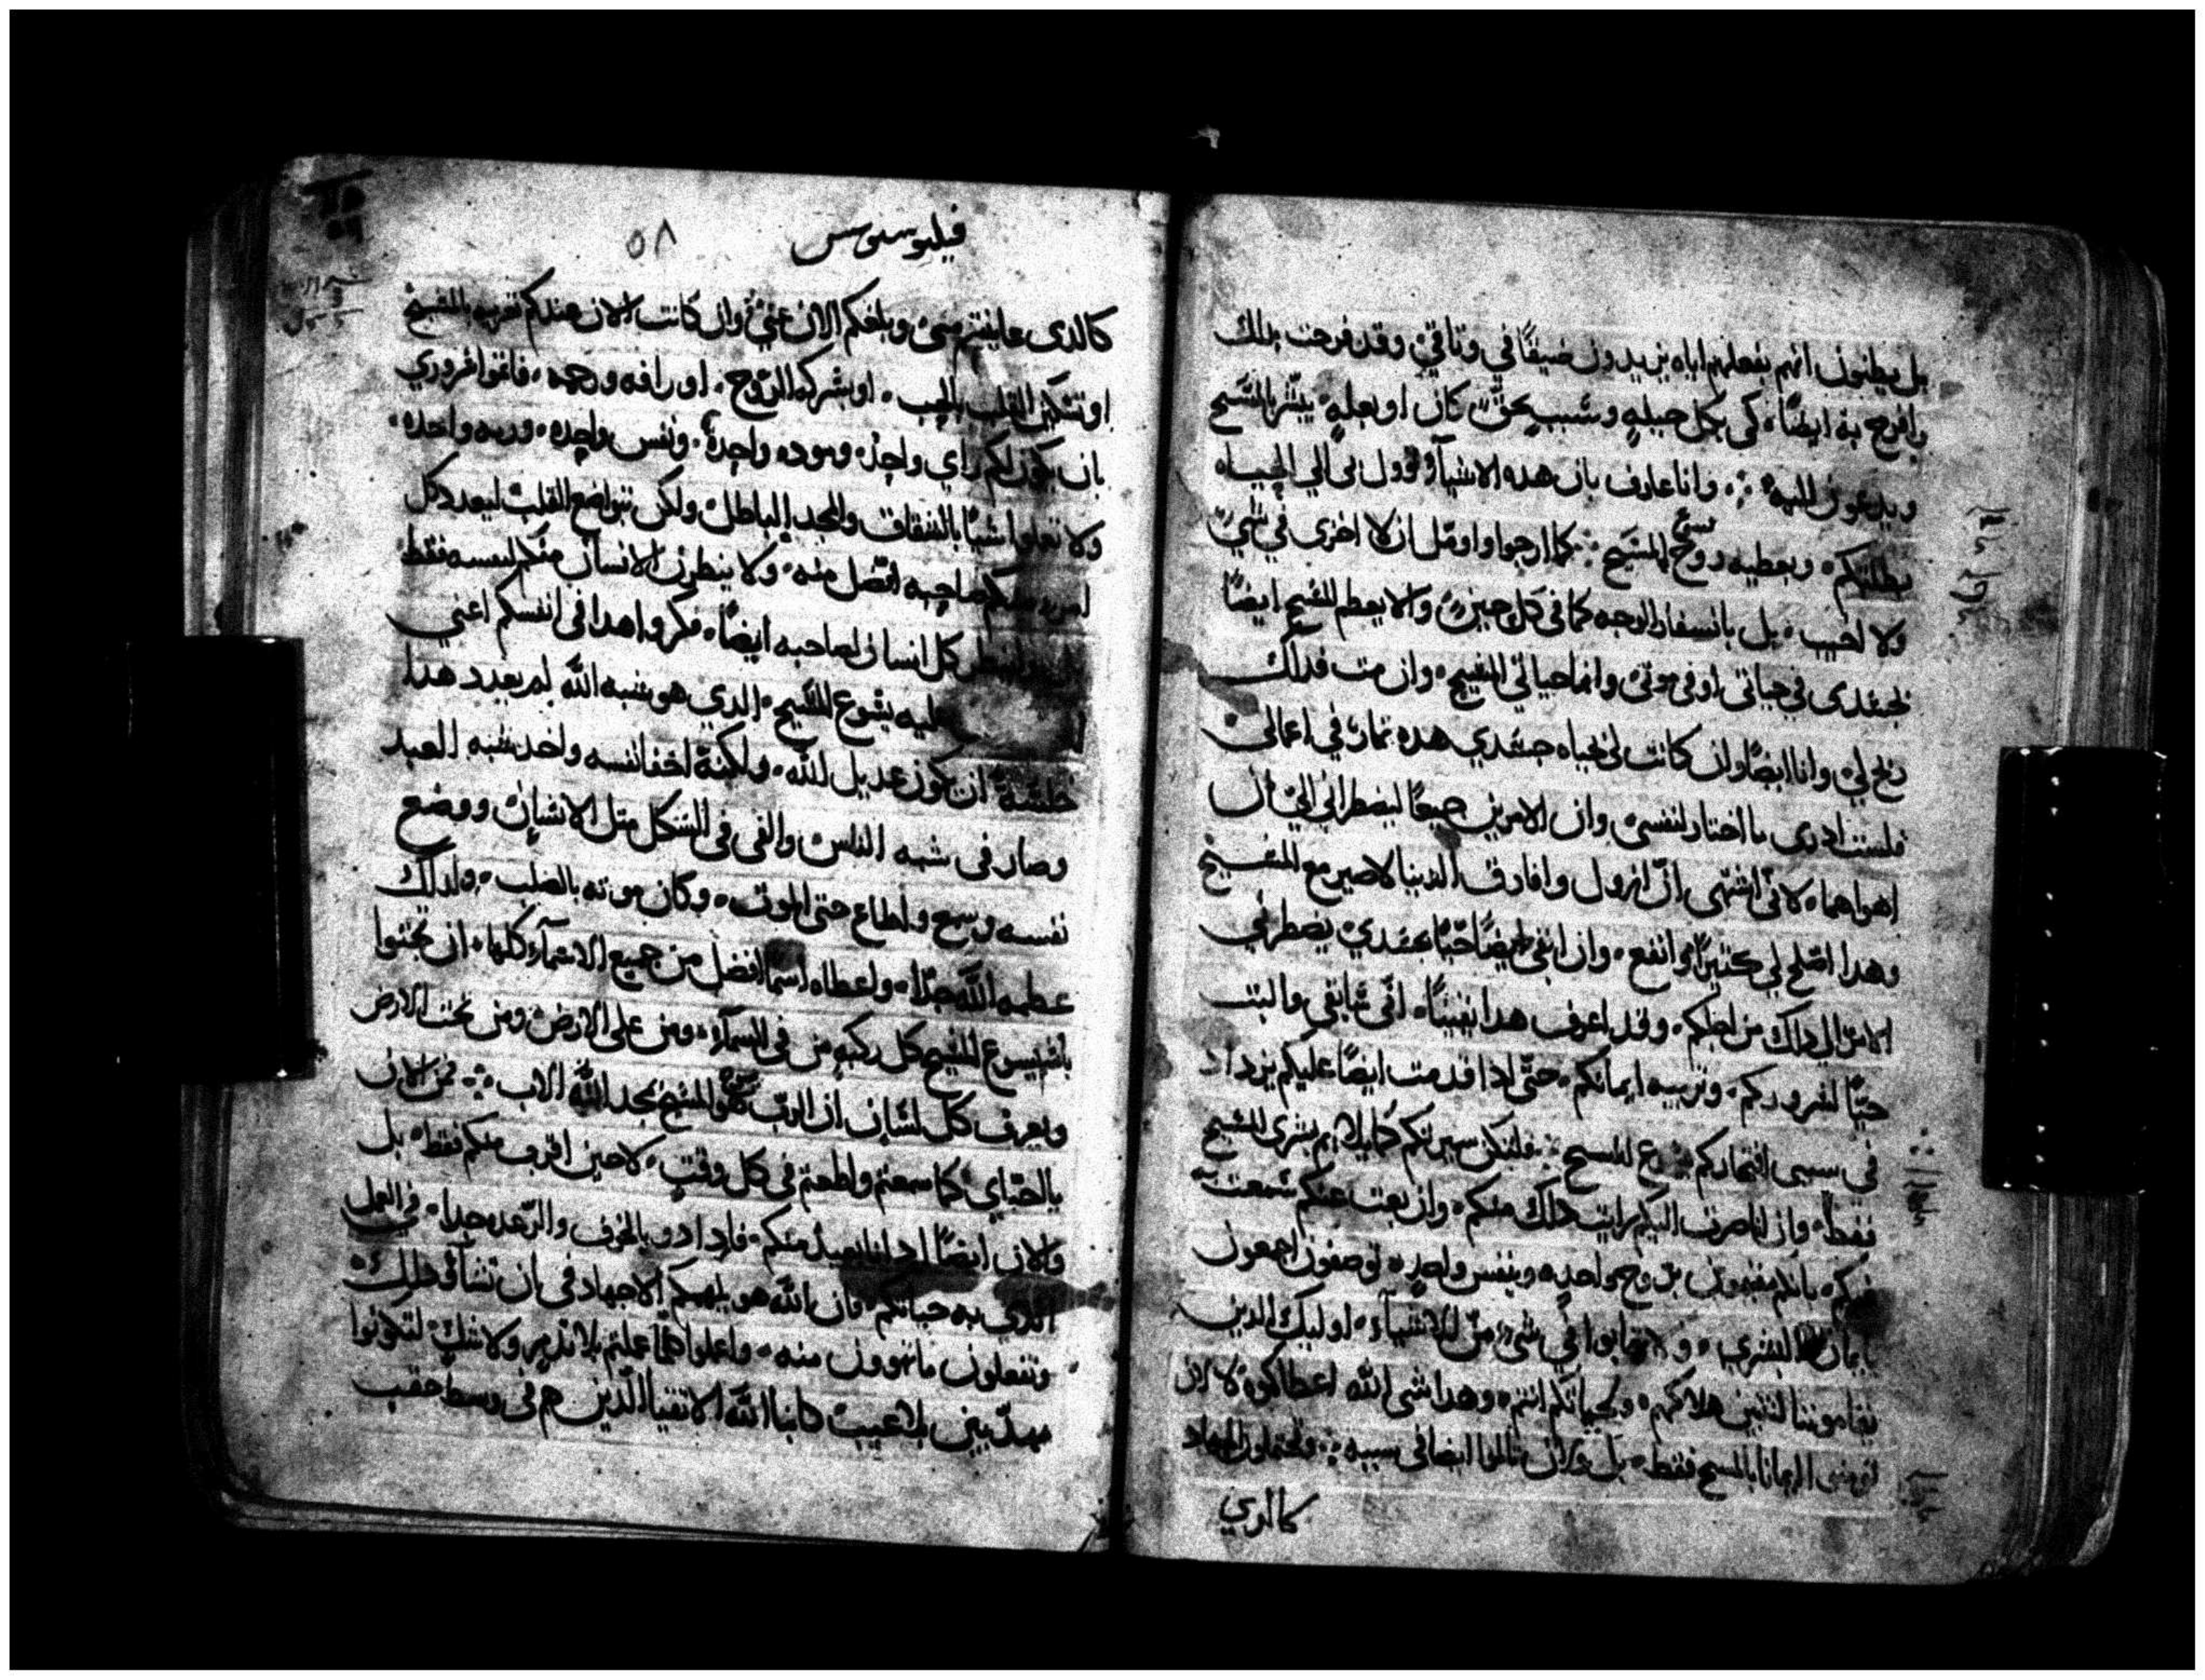 بل يظنون انهم بفعلهم اياه يزيدون ضيقًا في وثاقي وقد فرحت بذلك
وافرح به ايضًا كي بكل حيله وسبب بحق كان او بعله يبشر بالمسيح
ويدعون اليه وانا عارف بان هده الاشيا توول لي الي الحياه
بطلبتكم وبعطيه روح يسوع المسيح كما ارجوا واومل ان لا اخزى في شي
ولا اخيب بل باسفار الوجه كما في كل حين والان يعظم المسيح ايضًا
بجسدى في حياتى او في موتى وانما حياتي المسيح وان مت فداك
ربح لي وانا ايضًا وان كانت لي بحياه جسدي هده ثمار في اعمالى
فلست ادرى ما اختار لنفسى وان الامرين جميعًا ليضطراني الى ان
اهواهما لانى اشتهى ان ازول وافارق الدنيا لاصير مع المسيح
وهدا اصلح لي كثيرًا وانفع وان ابقى ايضًا حيًا بجسدي يضطرني
الامر الى داك من اجلكم وقد اعرف هدا يقينًا اني سابقى والبث
حيًا لسروركم وتربيه ايمانكم حتى ادا قدمت ايضًا عليكم يزداد
في سببى افتخاركم بيسوع المسيح فلتكن سيرتكم كما يلايم بشرى المسيح
فقط وان انا صرت اليكم رايت داك منكم وان بعدت عنكم سمعت
عنكم بانكم مقيمون بروح واحده وبنفس واحده توصفون اجمعون
بايمان البشرى ولا تهابوا في شى من الاشياء اوليك الدين
يقاوموننا لتبين هلاكهم وبحياتكم انتم وهدا شى الله اعطاكموه لا لان
تومنوا ايمانا بالمسيح فقط بل ولان تالموا ايضا فى سببه وتحتملون الجهاد
كالدي
فيليبوسيوس
٥٨
كالدى عاينتم منى وبلغكم الان عني وان كانت الان عندكم تعزيه بالمسيح
او تسكين القلب بالحب او بشركه الروح او رافه ورحمه فاتموا سروري
بان يكون لكم راي واحد وموده واحده ونفس واحده ورويه واحده
ولا تعملوا شيًا بالشقاق والمجد الباطل ولكن بتواضع القلب ليعدد كل
امرء منكم صاحبه افضل منه ولا ينظرن الانسان منكم لنفسه فقط
ولينظر كل انسان لصاحبه ايضًا فكروا هدا فى انفسكم اعني
عليه يشوع المسيح الدي هو شبه الله لم يعدد هدا
خلسة ان يكون عديل لله ولكنه اخفا نفسه واخد شبه العبد
وصار فى شبه الناس والفى فى الشكل مثل الانسان ووضع
نفسه وسمع واطاع حتى الموت وكان موته بالصلب ولدلك
عظمه الله جدًا واعطاه اسما افضل من جميع الاسماء كلها ان تجثوا
باسم يسوع المسيح كل ركبه من فى السماء ومن على الارض ومن تحت الارض
ويعرف كل لسان ان الرب هو المسيح بمجد الله الاب فمن الان
يااحباي كما سمعتم واطعتم فى كل وقت لا حين اقرب منكم فقط بل
والان ايضًا اد انا بعيد منكم فازدادو بالخوف والرعده جدا في العمل
الدي به حياتكم فان الله هو يلهمكم الاجهاد فى بان تشاو دلك
وتفعلون ما تهوون منه واعملوا كلما عملتم بلا تدمر ولا شك لتكونوا
مهدبين بلا عيب كابنا الله الاتقيا الدين هم فى وسط حقب